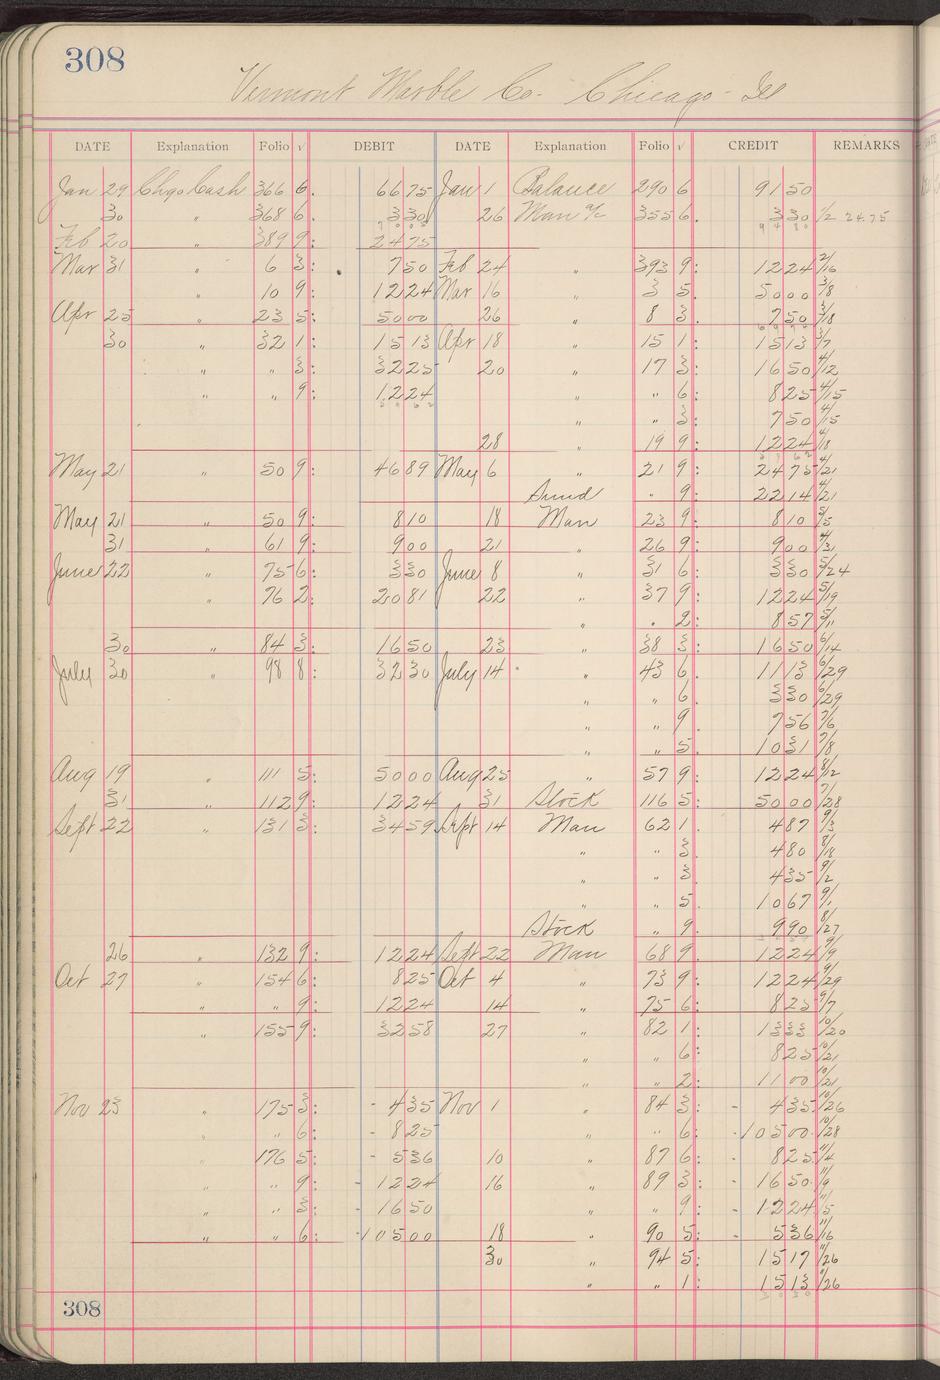 308
Vermont Marble Co - Chicago - Ill
DATE Explanation Folio √ DEBIT DATE Explanation Folio √ CREDIT REMARKS
Jan 29 Chgo Cash 366 6. 66 75 Jan 1 Balance 290 6 91 50
30 " 368 6. 3 30 26 Man a/c 355 6. 3 30 1/2 24.75
Feb 20 " 389 9: 24 75
Mar 31 " 6 3: 7 50 Feb 24 " 393 9: 12 24 2/16
" 10 9: 12 24 Mar 16 " 3 5. 50 00 3/8
Apr 25 " 23 5: 50 00 26 " 8 3. 7 50 3/18
30 " 32 1: 15 13 Apr 18 " 15 1: 15 13 3/7
" " 3: 32 25 20 " 17 3: 16 50 4/12
" " 9: 12 24 " " 6: 8 25 4/15
" " 3: 7 50 4/15
28 " 19 9: 12 24 4/18
May 21 " 50 9: 46 89 May 6 " 21 9: 24 75 4/21
Sund " 9: 22 14 4/21
May 21 " 50 9: 8 10 18 Man 23 9: 8 10 5/5
31 " 61 9: 9 00 21 " 26 9: 9 00
June 22 " 75 6: 3 30 June 8 " 31 6: 3 30 5/24
" 76 2: 20 81 22 " 37 9: 12 24 5/19
" . 2: 8 57 5/11
30 " 84 3: 16 50 23 " 38 3: 16 50 6/14
July 30 " 98 8: 32 30 July 14 " 43 6. 11 13 6/29
" " 6. 3 30 6/29
" " 9. 7 56 7/6
" " 5. 10 31 7/8
Aug 19 " 111 5: 50 00 Aug 25 " 57 9: 12 24 8/12
31 " 112 9: 12 24 31 Stock 116 5: 50 00 7/28
Sept 22 " 131 3: 34 59 Sept 14 Man 62 1. 4 87 9/3
" " 3. 4 80 8/18
" " 3. 4 35 9/2
" " 5. 10 67 9/1
Stock " 9. 9 90 8/27
26 " 132 9: 12 24 Sept 22 Man 68 9. 12 24 9/9
Oct 27 " 154 6: 8 25 Oct 4 " 73 9: 12 24 9/29
" " 9: 12 24 14 " 75 6: 8 25 9/7
" 155 9: 32 58 27 " 82 1: 13 33 10/20
" " 6: 8 25 10/21
" " 2: 11 00 10/21
Nov 23 " 175 3: - 4 35 Nov 1 " 84 3: - 4 35 10/26
" " 6: - 8 25 " " 6: - 105 00 10/28
" 176 5: - 5 36 10 " 87 6: - 8 25 11/4
" " 9: - 12 24 16 " 89 3: - 16 50 11/9
" " 3: - 16 50 " " 9: - 12 24 11/5
" " 6: - 105 00 18 " 90 5: - 5 36 11/16
30 " 94 5: 15 17 11/26
" " 1: 15 13 11/26
308